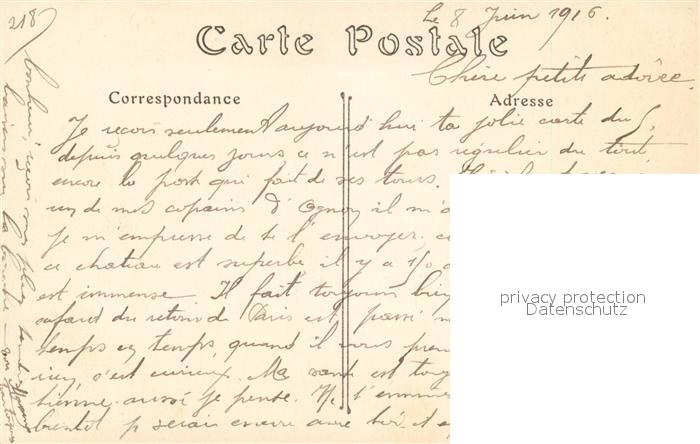 218
Le 8 Juin 1916.
Carte Postale
Chère petite adorée.
Correspondance
Adresse
Je reçois seulement aujourd'hui ta jolie carte du 5,
depuis quelques jours ce n'est pas régulier du tout,
encore la poste qui fait de ses tours.
un de mes copains d'Ognon il m'a
je m'empresse de te l'envoyer, ce
ce chateau est superbe il y a
est immense. Il fait toujours
cafard du retour de Paris est passé
temps en temps, quand il vous
ici, c'est curieux. Ma santé est
tienne aussi je pense. Ne t'ennuie
bientôt je serais encore avec toi, et
privacy protection
Datenschutz
bonheur, reçois mes plus
baisers sur la bouche